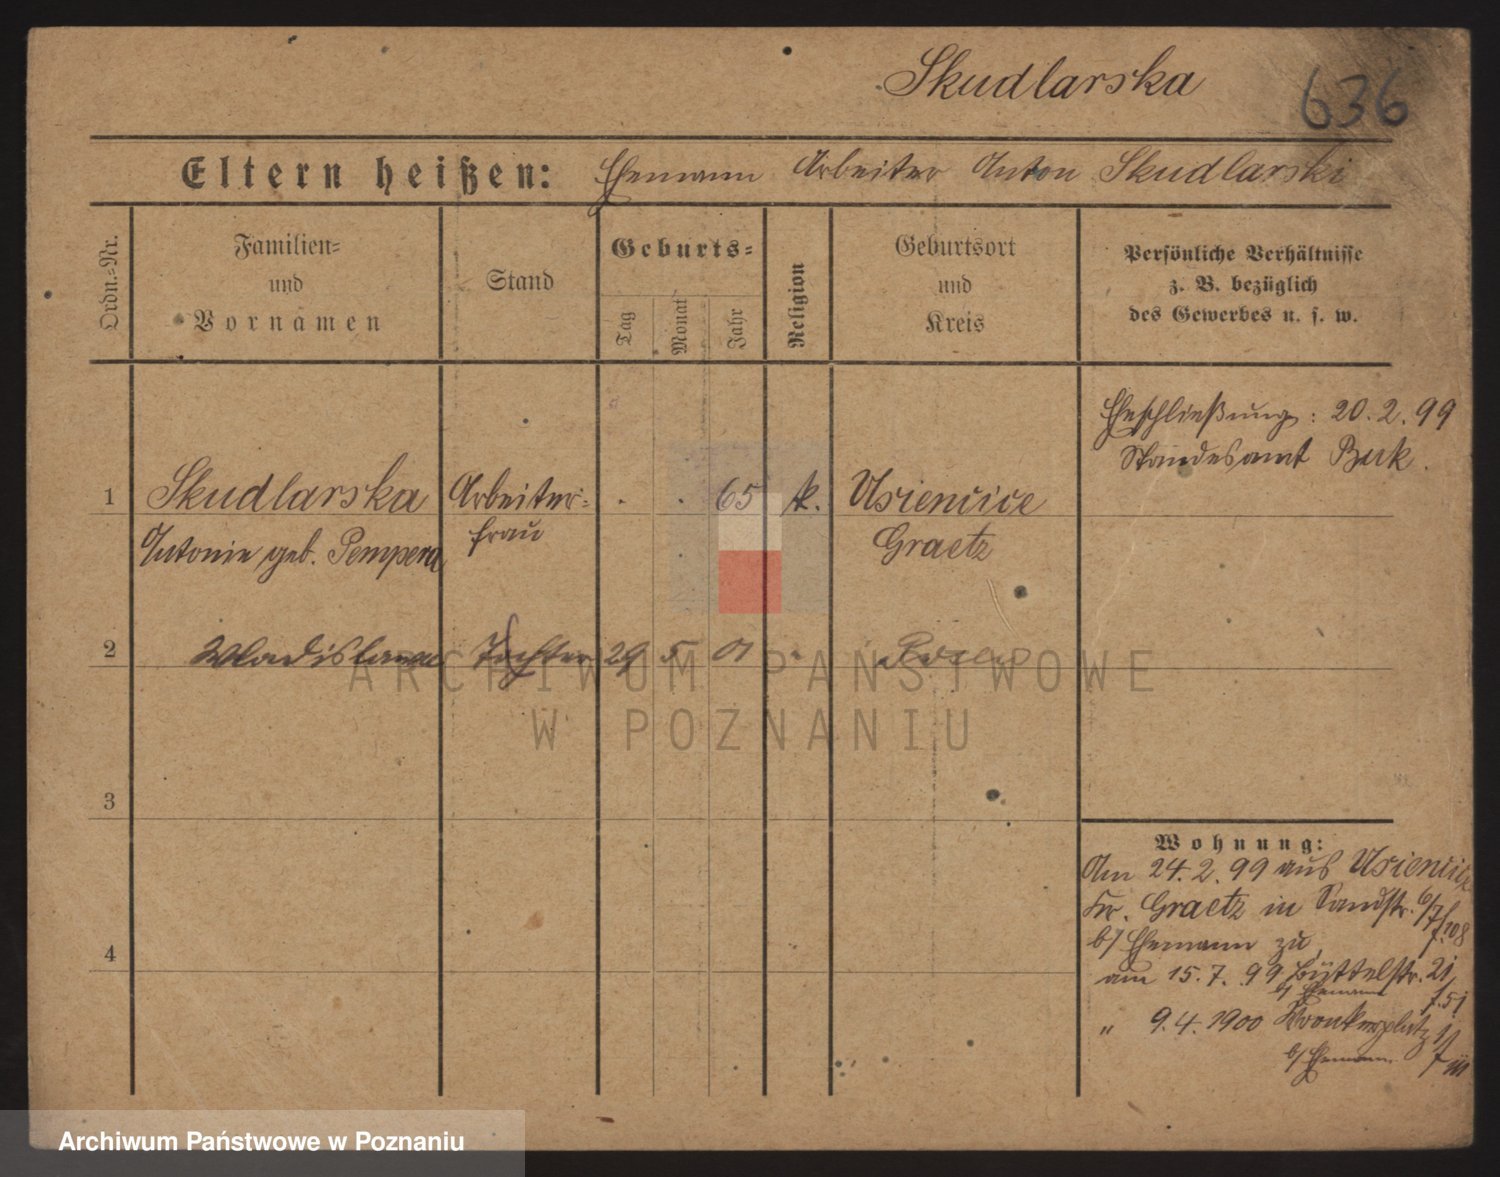 Skudlarska
636
Eltern heißen: Ehemann Arbeiter Anton Skudlarski
Ordn.=Nr.
Familien=
und
Vornamen
Stand
Geburts=
Tag
Monat
Jahr
Religion
Geburtsort
und
Kreis
Persönliche Verhältnisse
z. B. bezüglich
des Gewerbes u. s. w.
Eheschließung: 20.2.99
Standesamt Buk.
1 Skudlarska Arbeiter= . . 65 k. Usiencice
Antonie geb. Pempera frau Graetz
2 Wladislawa Tochter 29 5 01 Posen
3
4
Wohnung:
Am 24.2.99 aus Usiencice
Kr. Graetz in Sandstr. 6/7
b/ Ehemann zu
am 15.7.99 Büttelstr. 21
b/ Ehemann
" 9.4.1900 Wronkerplatz
b/ Ehemann
ARCHIWUM PAŃSTWOWE
W POZNANIU
Archiwum Państwowe w Poznaniu